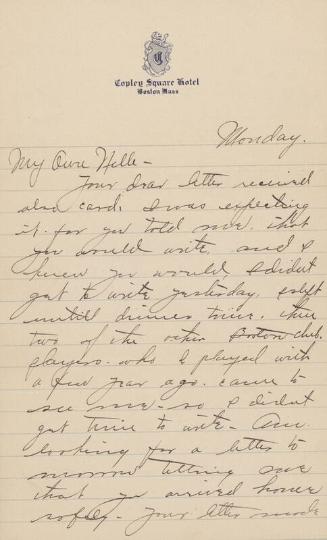 Copley Square Hotel
Boston Mass
Monday.
My Own Nelle -
Your dear letter received
also card. I was expecting
it. for you told me. that
you would write. and I
knew you would, I didnt
get to write yesterday. I slept
untill dinner time. then
two of the other Boston club.
players. who I played with
a few year ago. came to
see me - so I didnt
get time to write - Am
looking for a letter to
morrow telling me
that you arrived home
safely - Your letter made